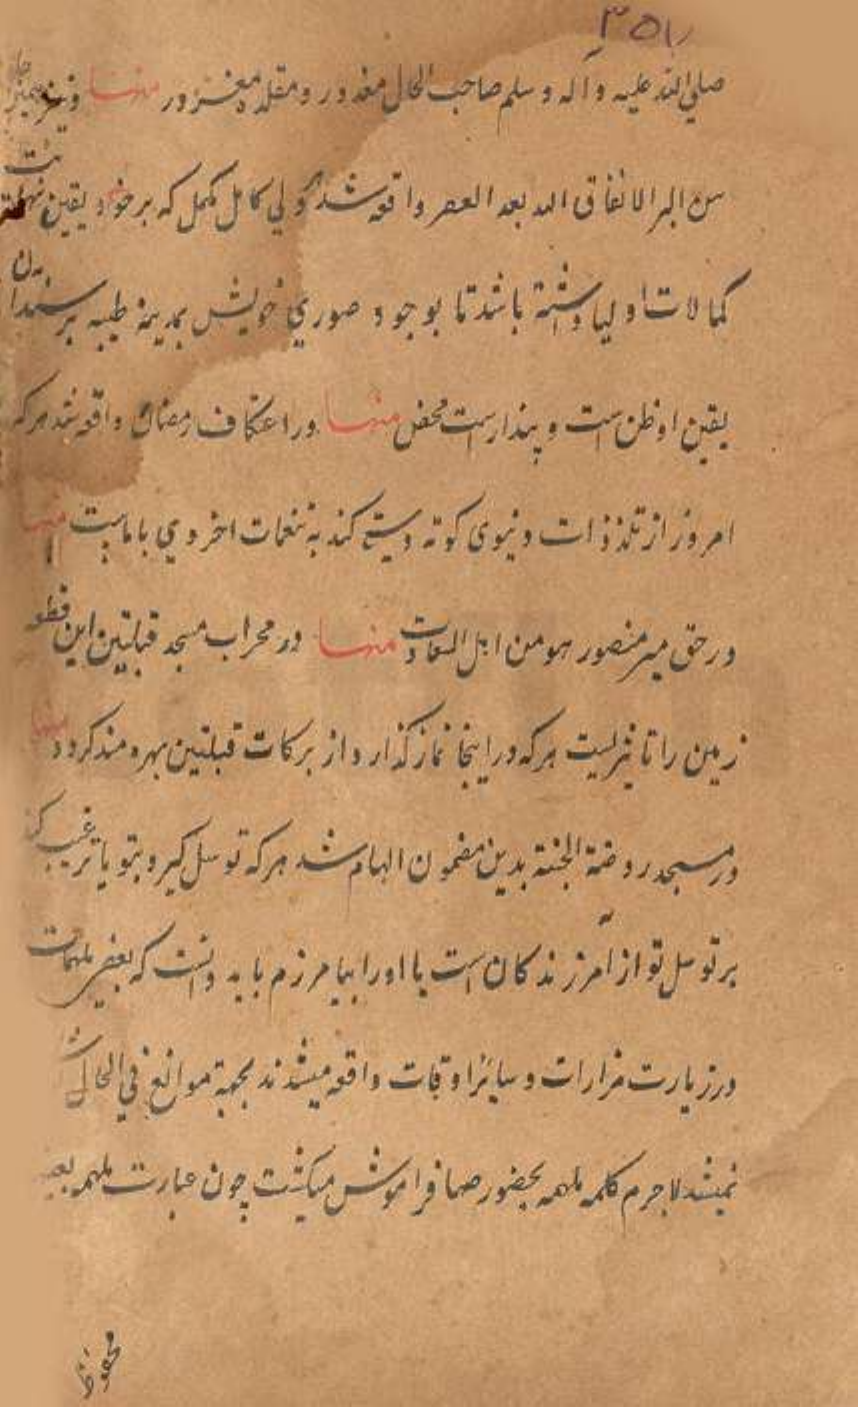 ۳۵۱
صلی الله علیه و آله و سلم صاحب الحال معذور و مقلده مغرور منها
من البر الاتفاقی الله بعد العصر واقعه شد که ولی کامل مکمل که بر خود یقین
کمالات اولیا داشته باشد تا بوجود صوری خویش بمدینه طیبه نرسد
یقین او ظن است و پندارست محض منها در اعتکاف رمضان واقعه شد هر که
امروز از تلذذات دنیوی کوته دستی کند به تنعمات اخروی باماست منها
در حق میر منصور هو من اهل السعادت منها در محراب مسجد قبلتین این قطعه
زمین را تاثیریست هر که در اینجا نماز گذارد از برکات قبلتین بهره مند گردد منها
در مسجد روضة الجنة بدین مضمون الهام شد هر که توسل گیرد بتو یا ترغیب کند
بر توسل تو از آمرزندگان است یا او را بیامرزم باید دانست که بعضی ملهمات
در زیارت مزارات و سایر اوقات واقعه میشدند بجهة موانع فی الحال
نمیشد لاجرم کلمه ملهمه بحضورها فراموش میگشت چون عبارت ملهمه
محفوظ